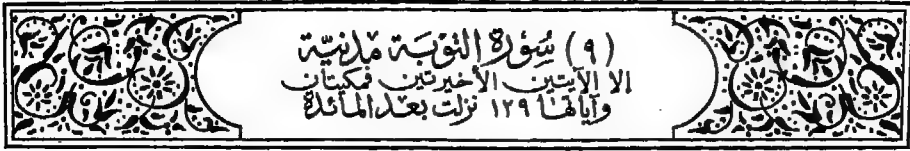 (٩) سُورَة التوبَة مَدنيَّة
إلا الآيتين الأخيرتين فمكيتان
وآياتها ١٢٩ نزلت بعد المائدة